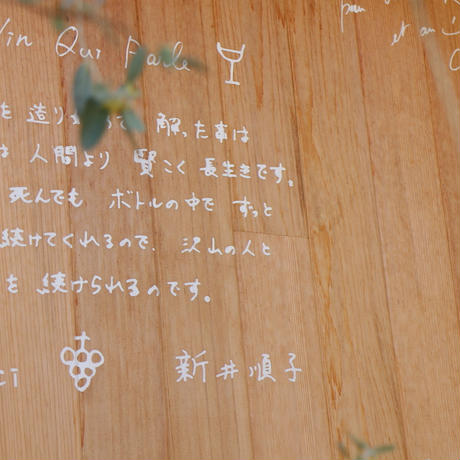 Vin Qui Parle
et au
を 造り って 解った事は
は 人間より 賢こく 長生きです。
死んでも ボトルの中で ずっと
続けてくれるので、沢山の人と
を 続けられるのです。
ci 新井順子